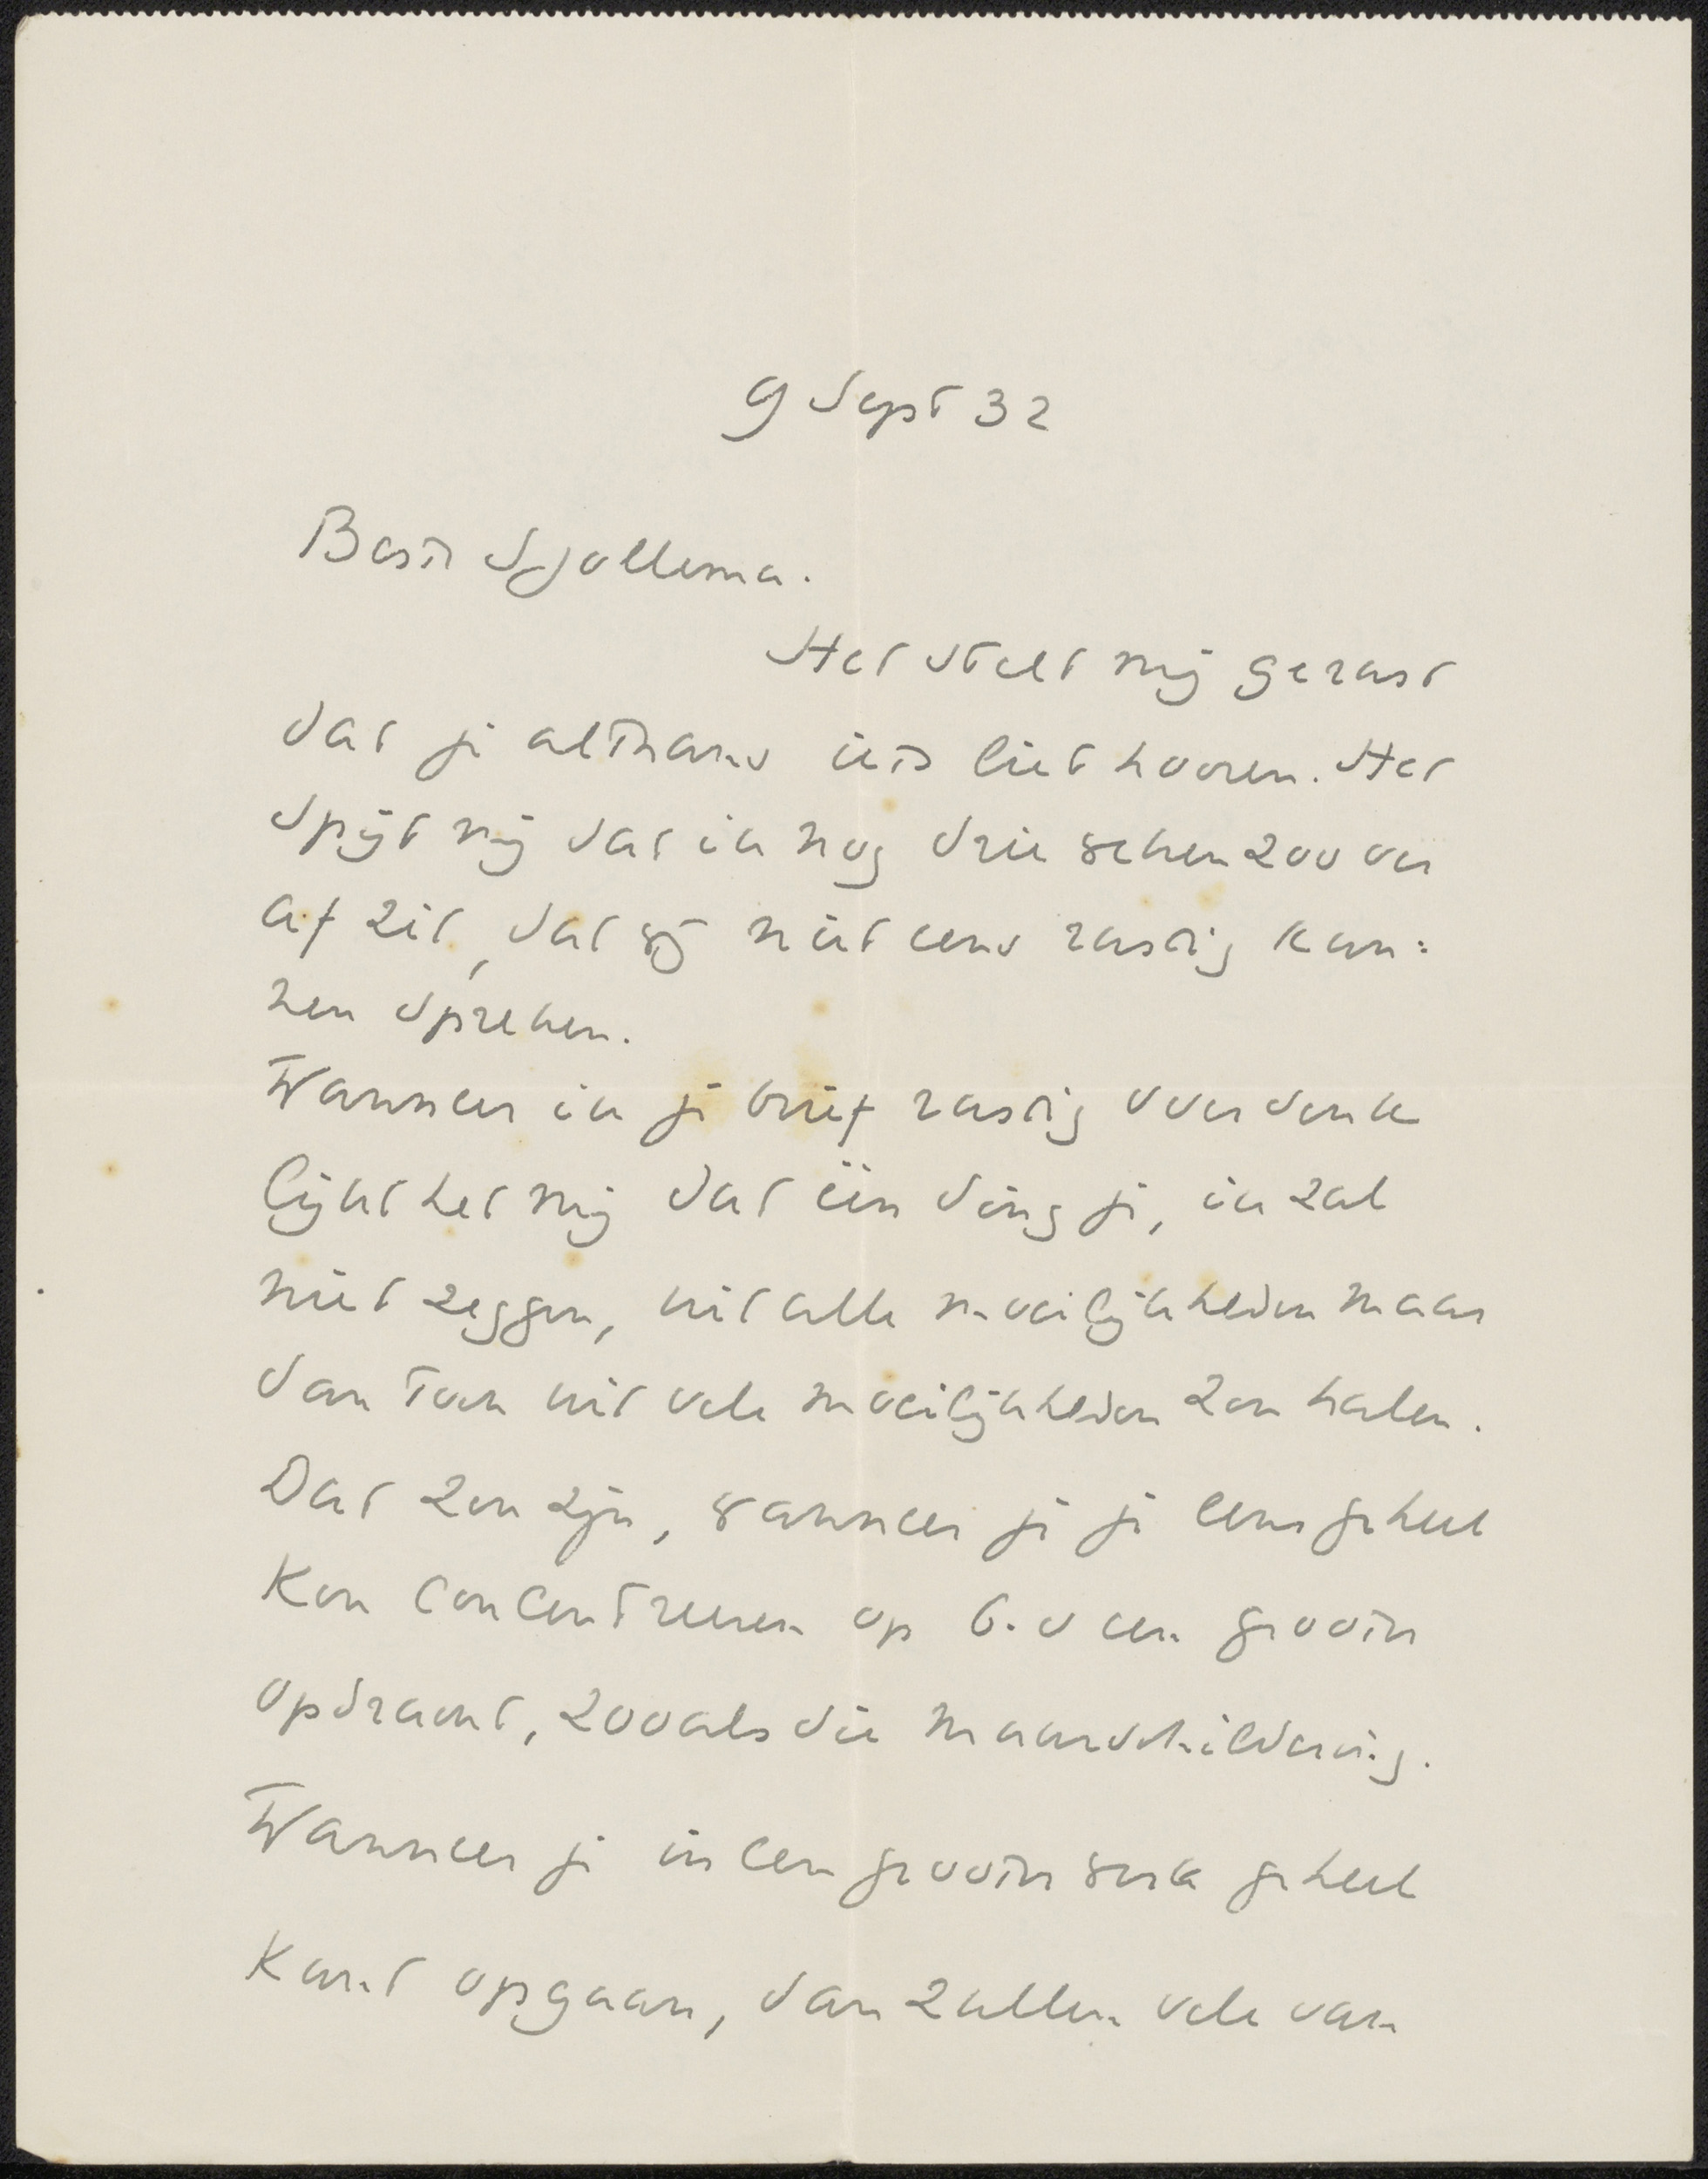 9 Sept 32
Beste Sjollema.
Het stelt mij gerust
dat je althans iets liet hooren. Het
spijt mij dat ik nog drie weken zoo ver
af zit, dat wij niet eens rustig kun:
nen spreken.
Wanneer ik je brief rustig overdenk
lijkt het mij dat één ding je, ik zal
niet zeggen, uit alle moeilijkheden maar
dan toch uit vele moeilijkheden zou halen.
Dat zou zijn, wanneer je je eens geheel
kon concentreeren op b.v een groote
opdracht, zooals die muurschildering.
Wanneer je in een groote werk geheel
kunt opgaan, dan zullen vele van